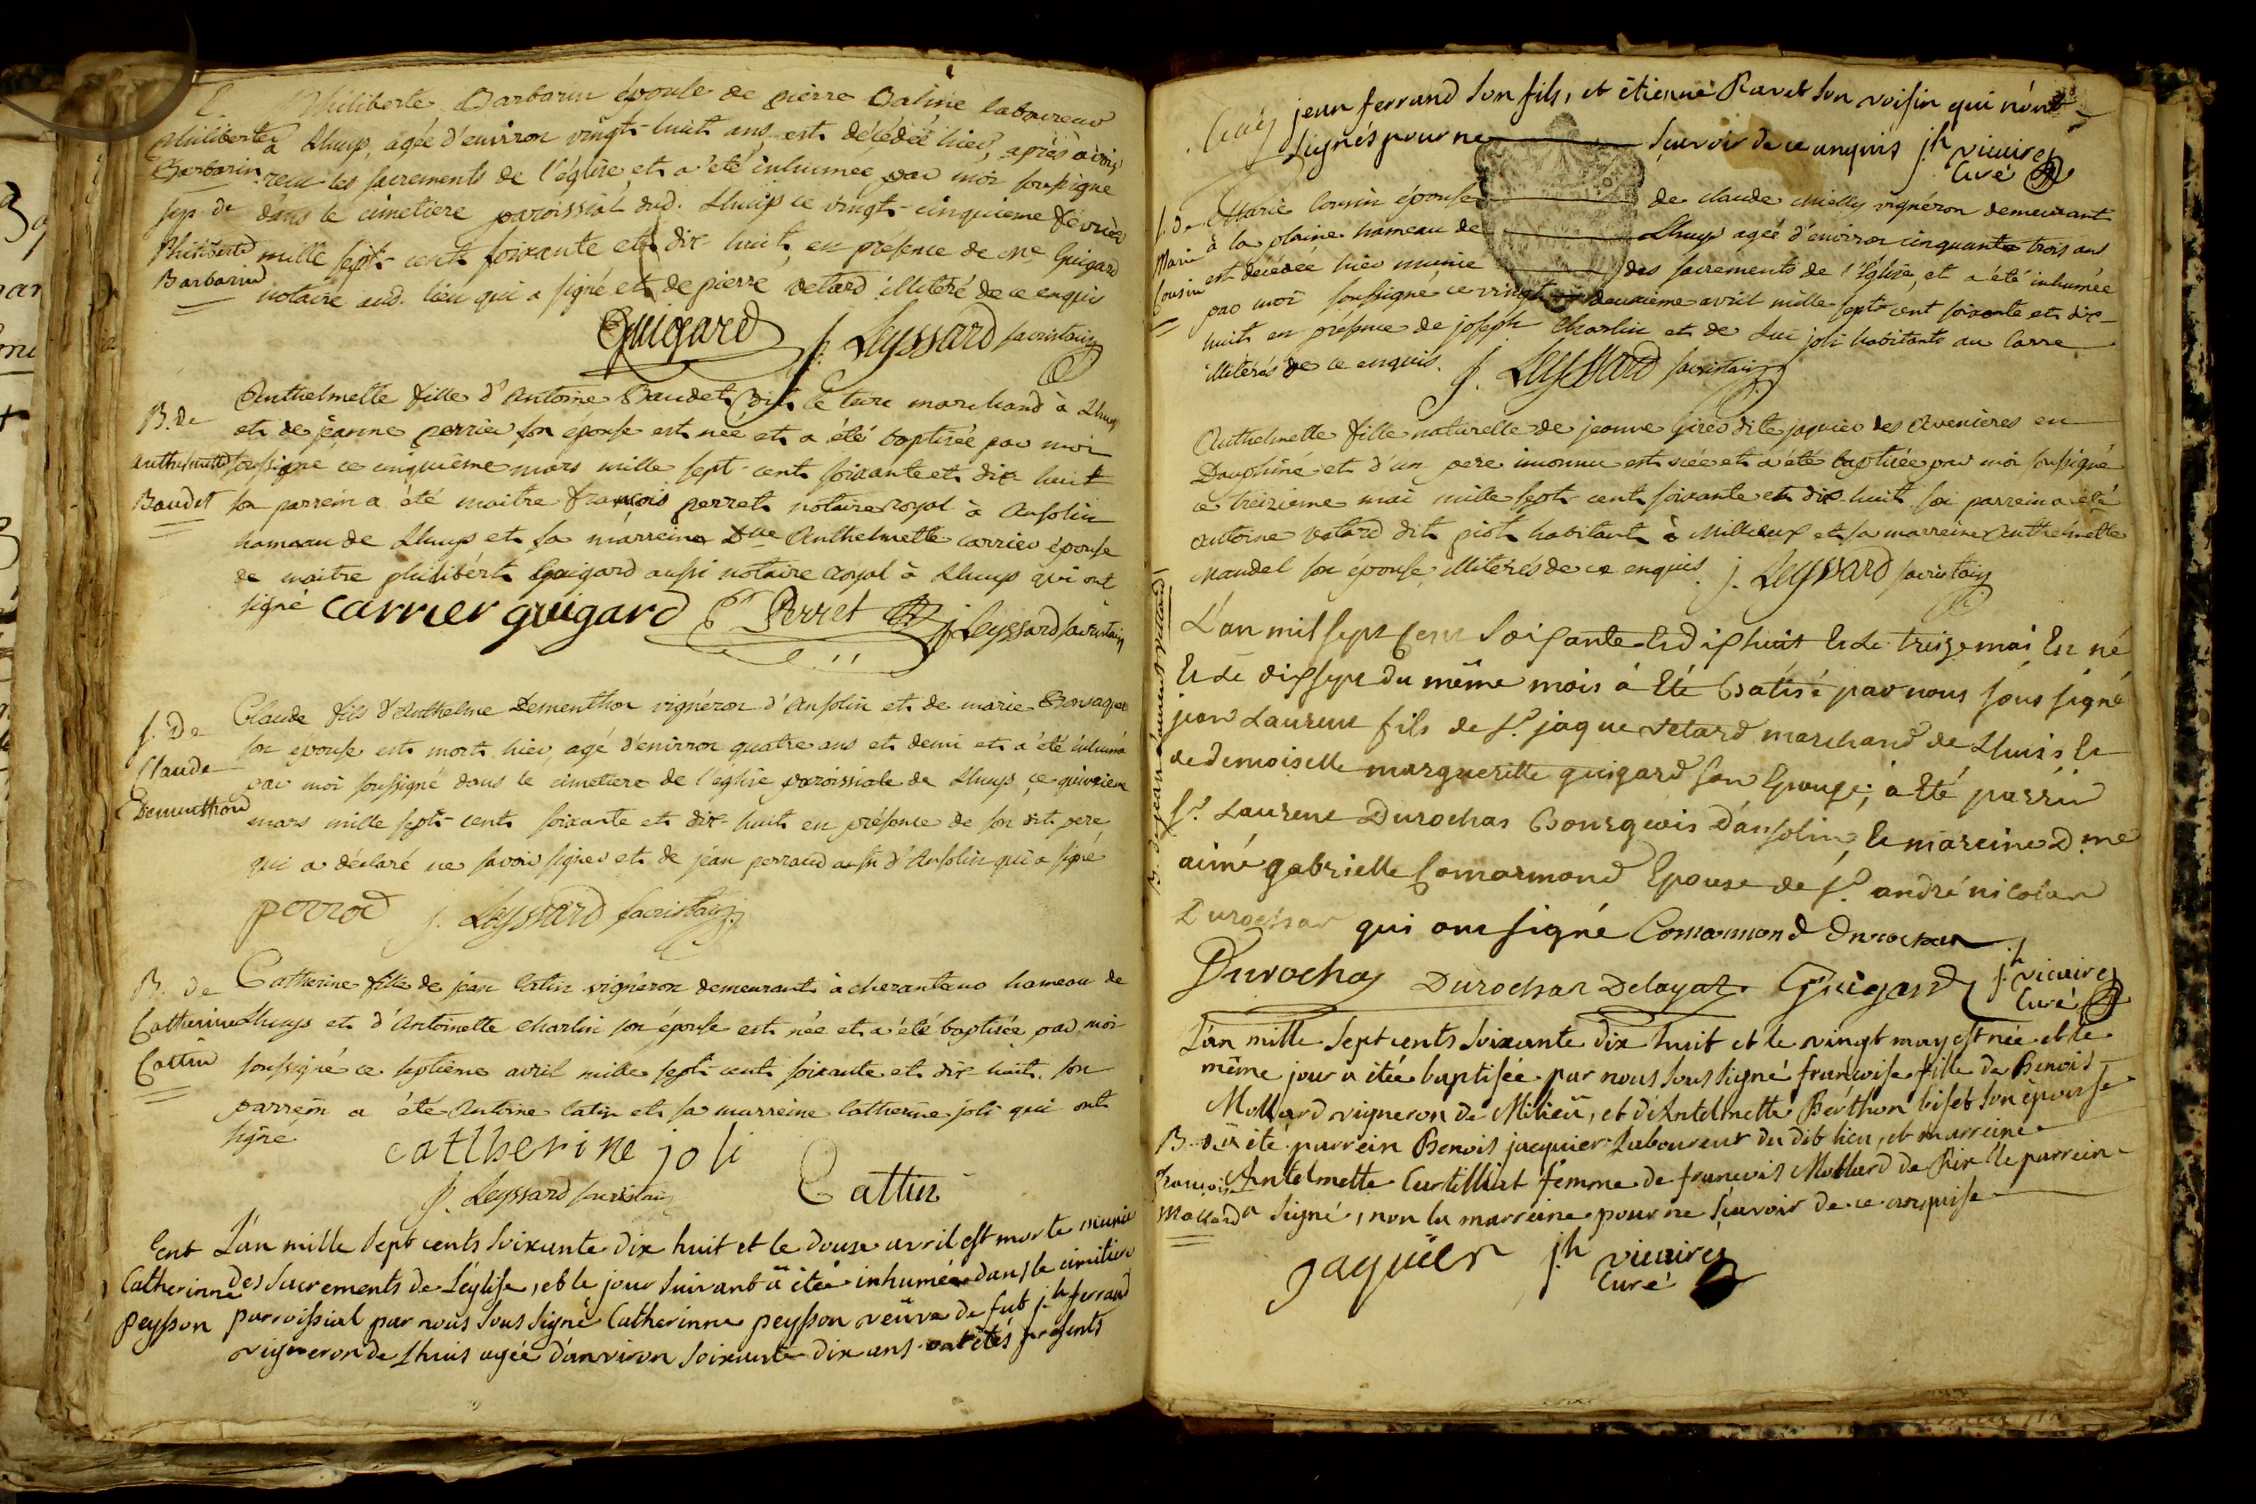 Philiberte Barbarin épouse de pierre Baline laboureur
philiberte à Lhuys, agée d'environ vingt-huit ans, est décédée hier, après avoir
Berbarin recu les sacrements de l'église et a été inhumée par moi soussigné
sep. de dans le cimetiere paroissial dud. Lhuys ce vingt-cinquieme février
Philiberte mille sept-cent soixante et dix-huit, en présence de me Guigard
Barbarin notaire aud. lieu qui a signé et de pierre vetard illitéré de ce enquis
Guigard j. Leyssard sacristain
Anthelmette fille d'Antoine Baudet dit le turc marchand à Lhuys
B. de et de jeanne perrier son épouse est née et a été baptisée par moi
anthelmette soussigné ce cinquième mars mille sept-cent soixante et dix huit
Baudet son parrein a été maitre françois perret notaire royal à Ansolin
hameau de Lhuys et sa marreine Dlle Anthelmette carrier épouse
de maitre philibert Guigard aussi notaire royal à Lhuys qui ont
signé carrier guigard Perret j. Leyssard sacristain
Claude fils d'Anthelme Dementhon vignéron d'Ansolin et de marie
s. De son épouse est mort hier, agé d'environ quatre ans et demi et a été inhumé
Claude par moi soussigné dans le cimetiere de l'église paroissiale de Lhuys, ce quinzieme
Dementhon mars mille sept-cent soixante et dix-huit en présence de son dit pere
qui a déclaré ne savoir signer et de jean perraud aussi d'Ansolin qui a signé
perrod j. Leyssard sacristain
B. de Catherine fille de jean Catin vignéron demeurant à cherantano hameau de
Catherine Lhuys et d'Antoinette charlin son épouse est née et a été baptisée par moi
Cattin soussigné ce septieme avril mille sept-cent soixante et dix-huit. son
parrein a été Antoine Catin et sa marreine Catherine joli qui ont
signé
catlherine joli
j. Leyssard sacristain Cattin
Ent L'an mille sept cents soixante dix huit et le douse avril est morte munie
Catherinne des sacrements de l'église, et le jour suivant a étée inhumée dans le cimitiere
peysson parroissial par nous sous signé Catherinne peysson veüve de fut jh ferrand
vigneron de Lhuis agée d'anviron soixante dix ans ont étés présents
jean ferrand son fils, et étienne Ravet son voisin qui n'ont
signés pour ne sçavoir de ce anquis jh vicaire
Curé
s. de Marie Cousin épouse de claude mielly vignéron demeurant
Marie à la plaine hameau de Lhuys agée d'environ cinquante trois ans
Cousin est decédée hier munie des sacrements de l'Eglise, et a été inhumée
par moi soussigné ce vingt deuxieme avril mille sept-cent soixante et dix-
huit en présence de joseph Charlin et de Luc joli habitants au Carre
illitérés de ce enquis. j. Leyssard sacristain
Anthelmette fille naturelle de jeanne Girer dite jaquier des Avenières en
Dauphiné et d'un pere inconnu est née et a été baptisée par moi soussigné
ce treizieme mai mille sept-cent soixante et dix-huit son parrein a été
antoine vetard dit piot habitant à Millieux et sa marreine Anthelmette
Maudel son épouse illitérés de ce enquis. j. Leyssard sacristain
B. de jean Laurent vettard
L'an mil sept Cent Soisante Et dishuit Et Le treise mai Est né
Et Le dissept du même mois à Eté Batisé par nous sous signé
jean Laurent fils de sr. jaque vetard marchand de Lhuis Et
de demoiselle marguerille guigard son Epouse; à Eté parrin
sr. Laurent Durochas Bourgeois d'ansolin, Et mareine D.me
aimé gabrielle Comarmond Epouse de sr. andré nicolas
Durochas qui ont signé Comarmond durochas
Durochas Durochas Delayat Guigard jh vicaire
Curé
L'an mille sept cents soixante dix huit et le vingt may est née et le
même jour a étée baptisée par nous sous signé francoise fille de Benois
Mollard vigneron de Milieü, et d'Antelmette Berthon biset son épouse
B. de a été parrein Benois jacquier Laboureur du dit lieu, et marreine
francoise Antelmette Curtilliat femme de francois Mollard de Rix le parrein
Mollard a signé, non la marreine pour ne sçavoir de ce anquise
jaquier jh vicaire
Curé